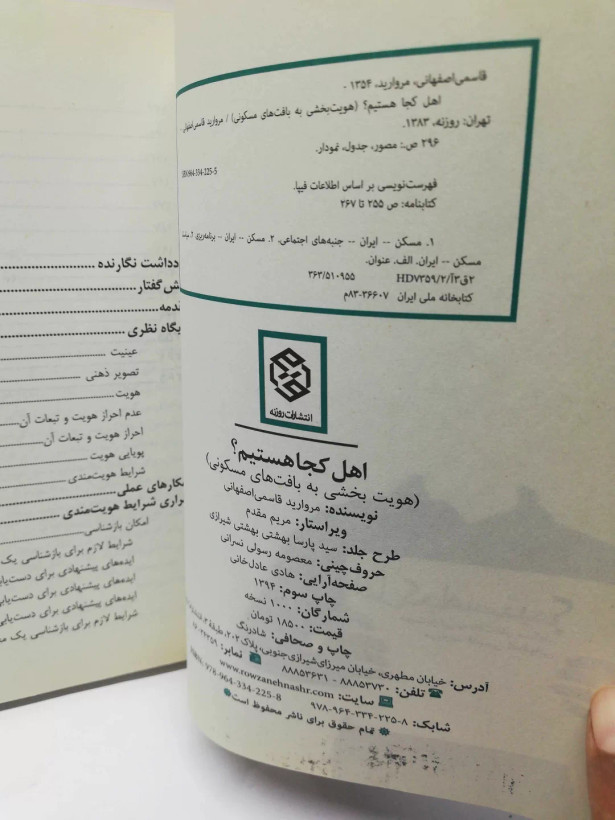 قاسمی‌اصفهانی، مروارید، ۱۳۵۴ -
اهل کجا هستیم؟ (هویت‌بخشی به بافت‌های مسکونی) / مروارید قاسمی‌اصفهانی.-
تهران: روزنه، ۱۳۸۳.
۲۹۶ ص.: مصور، جدول، نمودار.
ISBN:964-334-225-5
فهرست‌نویسی بر اساس اطلاعات فیپا.
کتابنامه: ص ۲۵۵ تا ۲۶۷
۱. مسکن -- ایران -- جنبه‌های اجتماعی. ۲. مسکن -- ایران -- برنامه‌ریزی. ۳.
مسکن -- ایران. الف. عنوان.
۲ق۳آ/۲/HD۷۳۵۹ ۳۶۳/۵۱۰۹۵۵
کتابخانه ملی ایران ۳۶۶۰۷-۸۳م
انتشارات روزنه
اهل کجا هستیم؟
(هویت بخشی به بافت‌های مسکونی)
نویسنده: مروارید قاسمی‌اصفهانی
ویراستار: مریم مقدم
طرح جلد: سید پارسا بهشتی بهشتی شیرازی
حروف‌چینی: معصومه رسولی نسرانی
صفحه‌آرایی: هادی عادل‌خانی
چاپ سوم: ۱۳۹۴
شمارگان: ۱۰۰۰ نسخه
قیمت: ۱۸۵۰۰ تومان
چاپ و صحافی: شادرنگ
آدرس: خیابان مطهری، خیابان میرزای‌شیرازی‌جنوبی، پلاک۲۰۲، طبقه
تلفن: ۸۸۸۵۳۷۳۰ - ۸۸۸۵۳۶۳۱ نمابر:
سایت: www.rowzanehnashr.com
شابک: ۸-۲۲۵-۳۳۴-۹۶۴-۹۷۸ ISBN: 978-964-334-225-8
تمام حقوق برای ناشر محفوظ است
دداشت نگارنده
ش‌گفتار
دمه
گاه نظری
عینیت
تصویر ذهنی
هویت
عدم احراز هویت و تبعات آن
احراز هویت و تبعات آن
پویایی هویت
شرایط هویت‌مندی
کارهای عملی
راری شرایط هویت‌مندی
امکان بازشناسی
شرایط لازم برای بازشناسی یک
ایده‌های پیشنهادی برای دست‌یابی
ایده‌های پیشنهادی برای دست‌یابی
ایده‌های پیشنهادی برای دست‌یابی
شرایط لازم برای بازشناسی یک